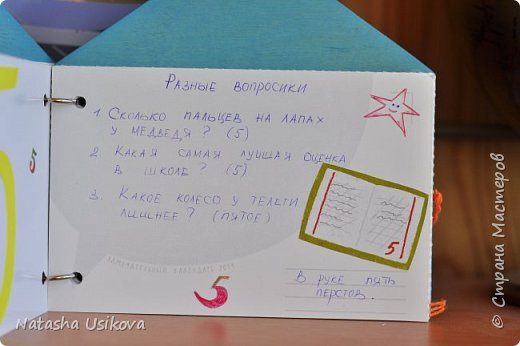 Разные вопросики
1. Сколько пальцев на лапах
у медведя? (5)
2. Какая самая лучшая оценка
в школе? (5)
3. Какое колесо у телеги
лишнее? (пятое)
5
5
ЗАМЕЧАТЕЛЬНЫЙ КАЛЕНДАРЬ 2014
5
В руке пять
перстов.
Natasha Usikova
© Страна Мастеров